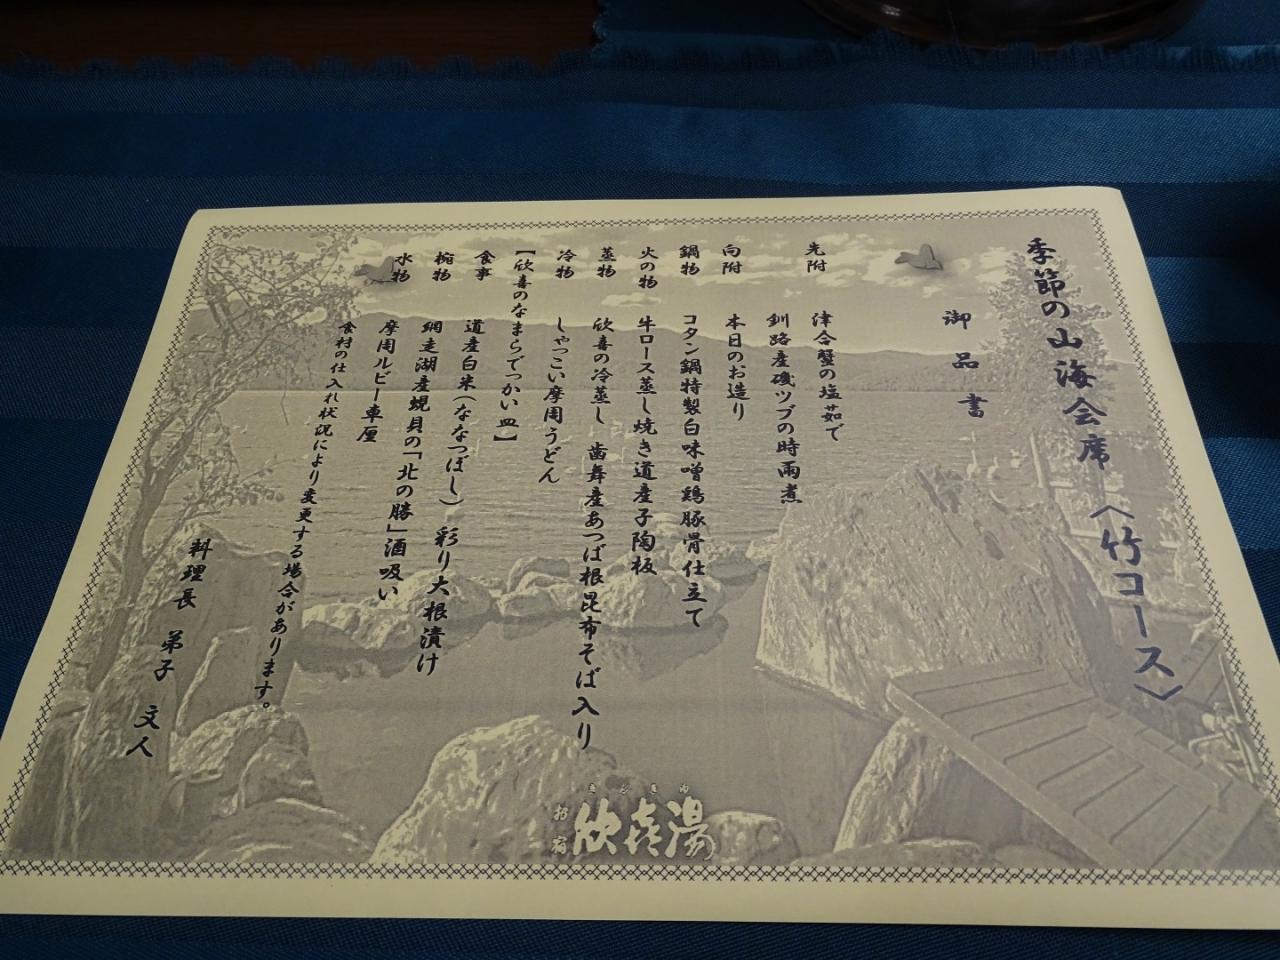 季節の山海会席〈竹コース〉
御品書
先附 津合蟹の塩茹で
釧路産磯ツブの時雨煮
向附 本日のお造り
鍋物 コタン鍋特製白味噌鶏豚骨仕立て
火の物 牛ロース蒸し焼き道産子陶板
蒸物 欣喜の冷蒸し 歯舞産あつば根昆布そば入り
冷物 しゃっこい摩周うどん
【欣喜のなまらでっかい皿】
食事 道産白米(ななつぼし) 彩り大根漬け
椀物 網走湖産蜆貝の「北の勝」酒吸い
水物 摩周ルビー車厘
食材の仕入れ状況により変更する場合があります。
料理長 弟子 文人
きんきゆ
お宿 欣喜湯